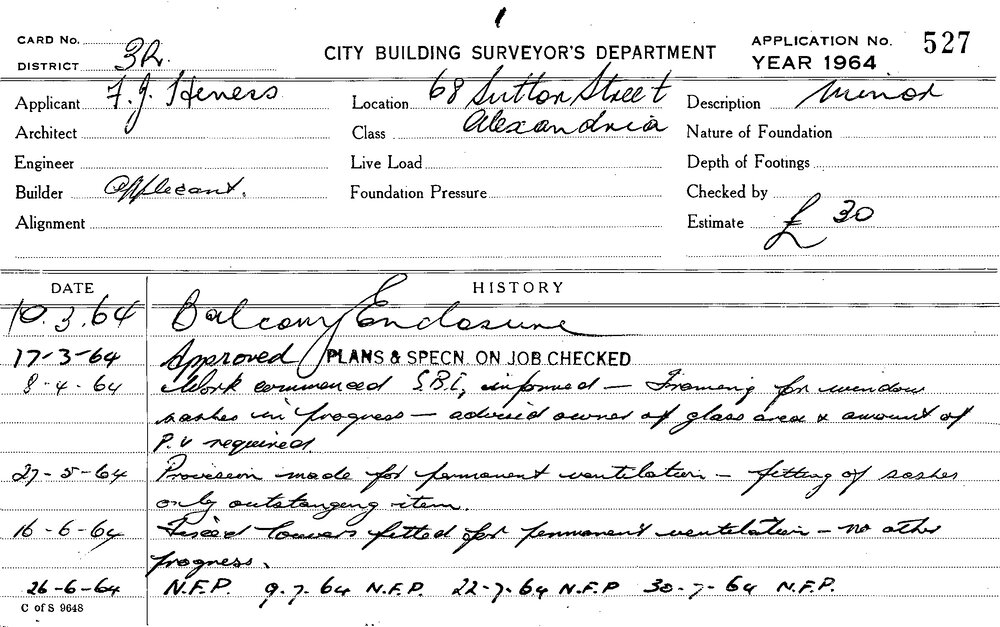 CARD No.
DISTRICT 32.
CITY BUILDING SURVEYOR'S DEPARTMENT
APPLICATION No. 527
YEAR 1964
Applicant F.J. Heness
Location 68 Sutton Street
Alexandria
Description Minor
Architect
Class
Nature of Foundation
Engineer
Live Load
Depth of Footings
Builder Applicant.
Foundation Pressure
Checked by
Alignment
Estimate £ 30
DATE HISTORY
10.3.64 Balcony Enclosure
17-3-64 Approved PLANS & SPECN. ON JOB CHECKED
8-4-64 Work commenced informed — Framing for window
sashes in progress — advised owner of glass area & amount of
P.V required.
27-5-64 Provision made for permanent ventilation — fitting of sashes
only outstanging item.
16-6-64 Fixed louvers fitted for permanent ventilation — no other
progress.
26-6-64 N.F.P. 9.7.64 N.F.P. 22-7-64 N.F.P 30-7-64 N.F.P.
C of S 9648